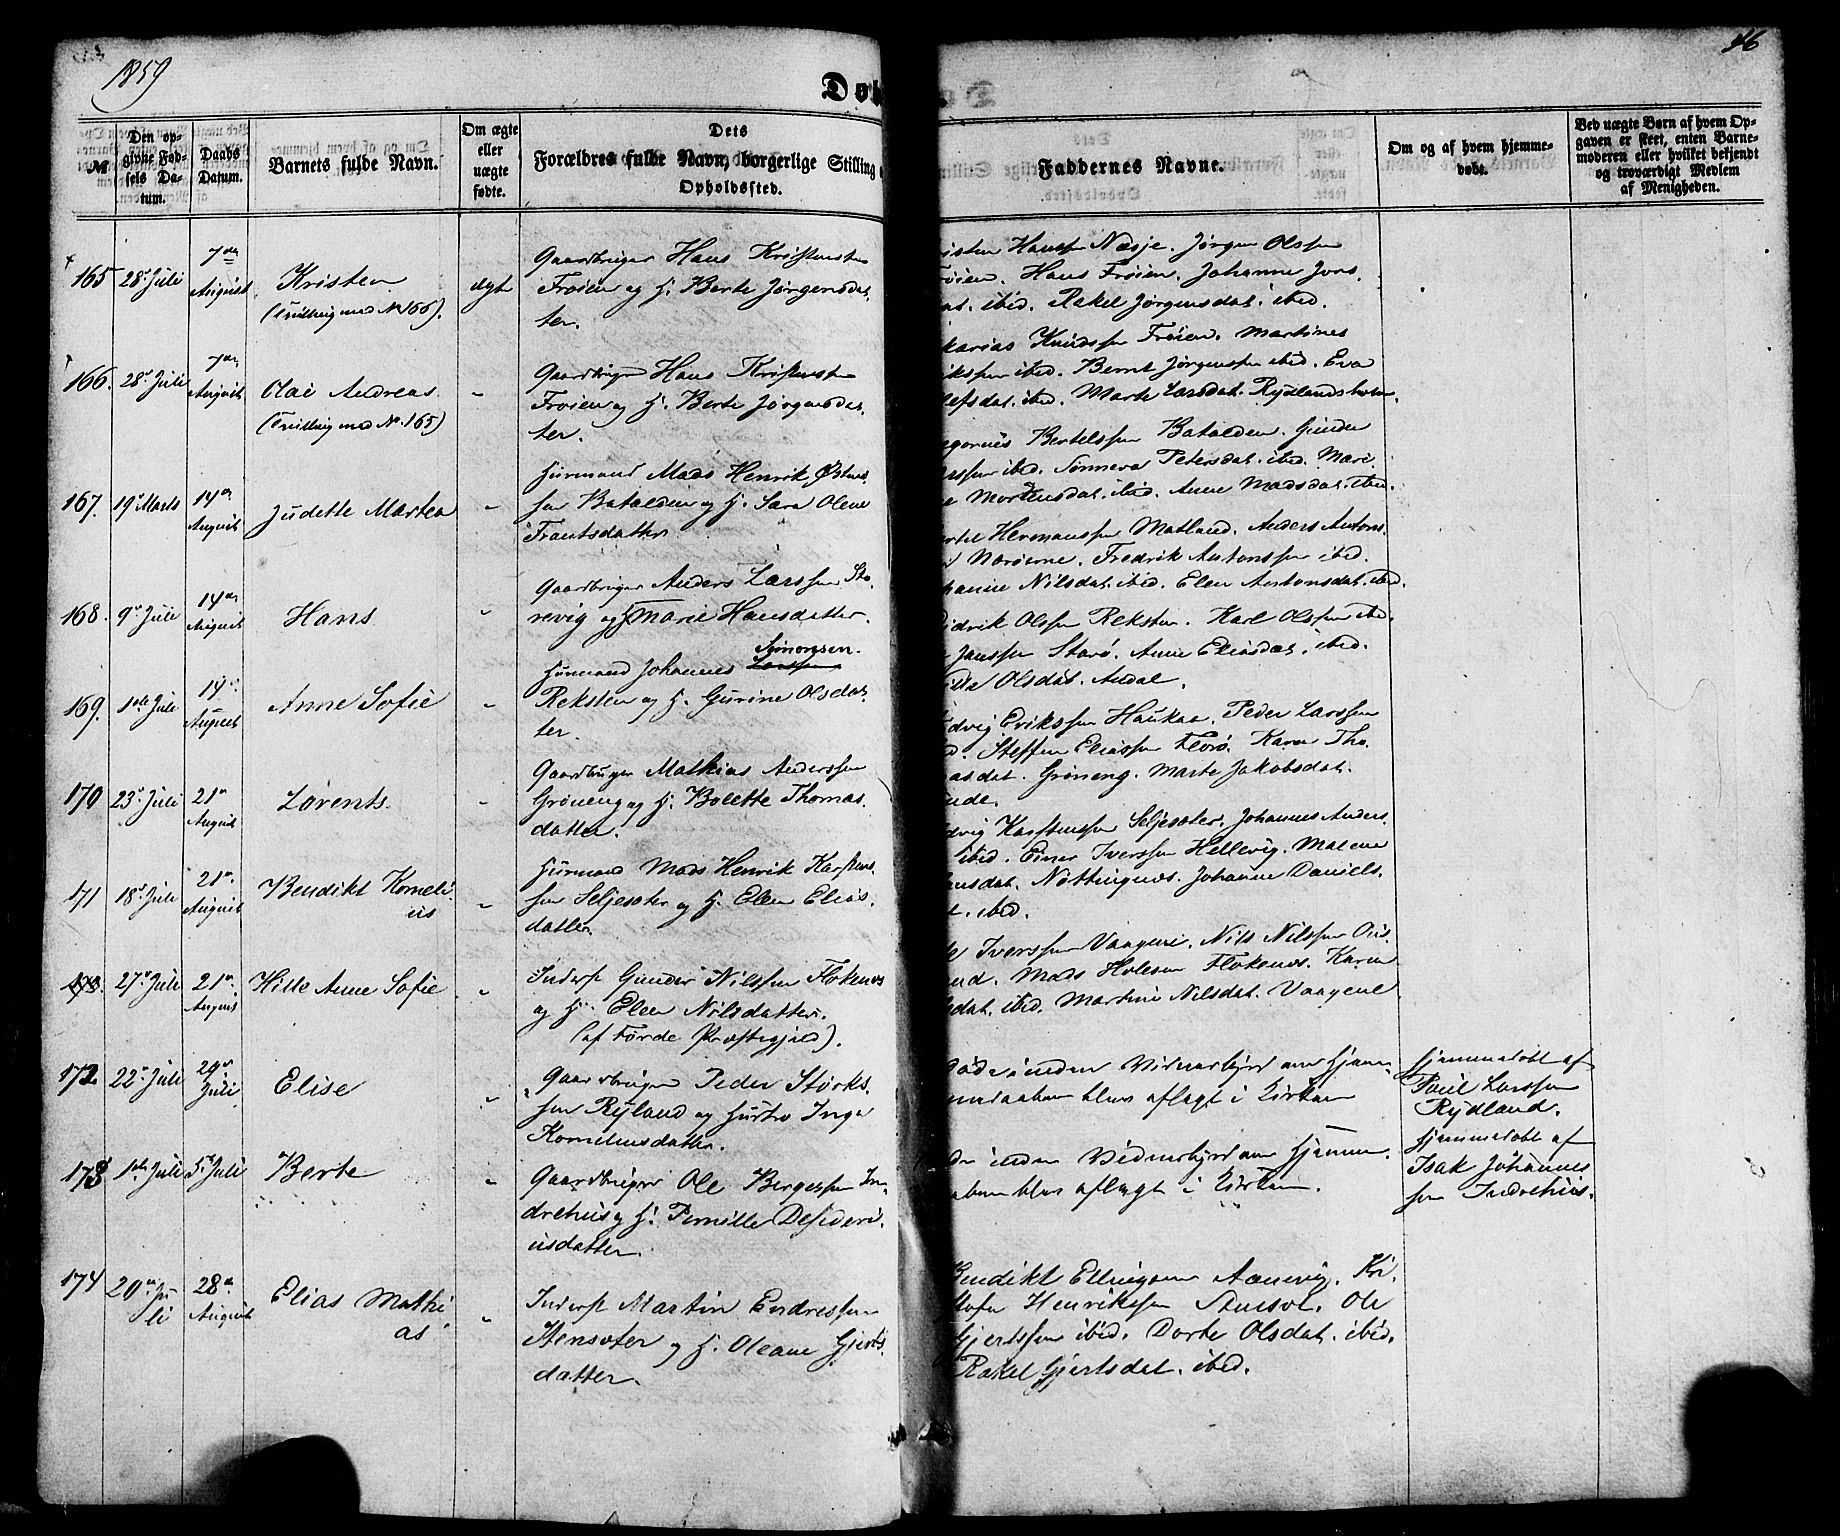 1859
46
Døb
№
Den op-
givne Fød-
sels Da-
tum.
Daabs
Datum.
Barnets fulde Navn.
Om ægte
eller
uægte
fødte.
Dets
Forældres fulde Navn, borgerlige Stilling
Opholdssted.
Faddernes Navne.
Om og af hvem hjemme-
døbt.
Ved uægte Børn af hvem Op-
gaven er skeet, enten Barne-
moderen eller hvilket bekjendt
og troværdigt Medlem
af Menigheden.
165 28de Juli 7de August
Kristen
(Tvilling med N. 166).
ægte
Gaardbruger Hans Kristensen
Frøien og H. Berte Jørgensdat-
ter.
Hansen Næsje. Jørgen Olssen
Hans Frøien. Johanne Jons
ibid. Rakel Jørgensdat. ibid.
166. 28de Juli 7de August
Olai Andreas.
(Tvilling med N. 165)
Gaardbruger Hans Kristensen
Frøien og H. Berte Jørgensdat-
ter.
Knudssen Frøien. Martines
ibid. Bernt Jørgenssen ibid. Eva
ibid. Marte Larsdat. Rydlandsholm.
167. 19de Marts 14de August
Judette Martea
Huusmand Mads Henrik
sen Batalden og H. Sara Olene
Frantsdatter
Bertelssen Batalden. Gunder
ibid. Sønneva Petersdat. ibid. Mari
Mortensdat. ibid. Anne Madsdat. ibid.
168. 9de Juli 14de August
Hans
Gaardbruger Anders Larssen Sto-
revig og H. Marie Hansdatter.
Hermanssen Matland. Anders Antons
Nærøerne. Fredrik Antonssen ibid.
Nilsdat. ibid. Elen Antonsdat. ibid.
169. 1ste Juli 14de August
Anne Sofie
Simonsen.
Huusmand Johannes Larssen
Reksten og H. Gurine Olsdat-
ter.
Olssen Reksten. Karl Olssen ibid.
Janssen Starø. Anne Eliasdat. ibid.
Olsdat. Andal.
170 23de Juli 21de August
Lorents.
Gaardbruger Mathias Anderssen
Grøneng og H. Bolette Thomas-
datter.
Erikssen Haukaa. Peder Larssen
Steffen Eliassen Florø. Karen Tho-
masdat. Grøneng. Marte Jakobsdat.
171 18de Juli 21de August
Bendikt Korneli-
us
Huusmand Mads Henrik Karstens-
sen Seljesæter og H. Elen Elias-
datter.
Karstenssen Seljesæter. Johannes Anders.
ibid. Einer Iverssen Hellevig. Malene
Nøttingnes. Johanne Daniels-
ibid.
173. 27de Juli 21de August
Hille Anne Sofie
Inderst Gunder Nilssen Flokenes
og H. Elen Nilsdatter.
(af Førde Præstegjeld).
Iverssen Vaagene. Nils Nilssen
Mads Flokenes. Karen
ibid. Martine Nilsdat. Vaagene
172 22de Juli 29de Juli
Elise
Gaardbruger Peder Størks-
sen Ryland og Hustro Inga
Korneliusdatter.
inden Vidnesbyrd om Hjem-
medaaben blev aflagt i Kirken
Hjemmedøbt af
Paul Larssen
Rydland.
173 1ste Juli 5te Juli
Berte
Gaardbruger Ole Bergessen In-
drehus og H. Pernille Desideri-
usdatter.
inden Vidnesbyrd om Hjemme-
daaben blev aflagt i Kirken.
Hjemmedøbt af
Isak Johannes-
sen Indrehus.
174 20de Ju-
li 28de August
Elias Mathi-
as
Inderst Martin Endressen
Stensæter og H. Oleane Gjerts-
datter.
Bendikt Ellingsen. Kri-
stofer Henrikssen. Ole
Gjertssen ibid. Dorte Olsdat. ibid.
Rakel Gjertsdat. ibid.